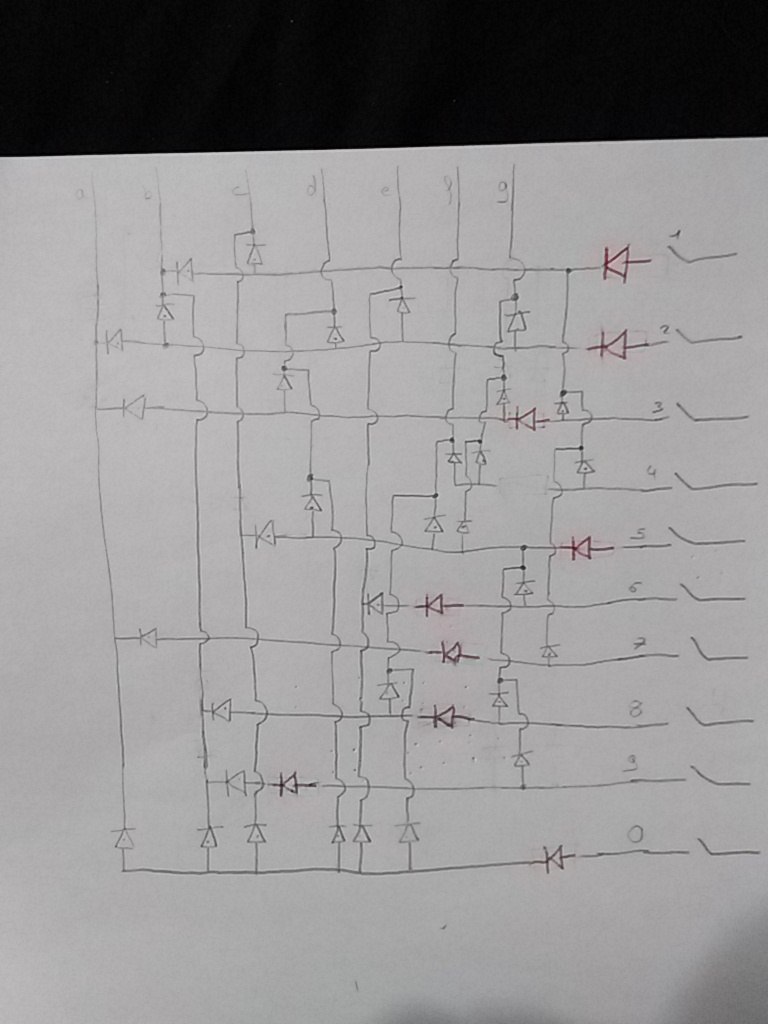 a b c d e f g
1
2
3
4
5
6
7
8
9
0